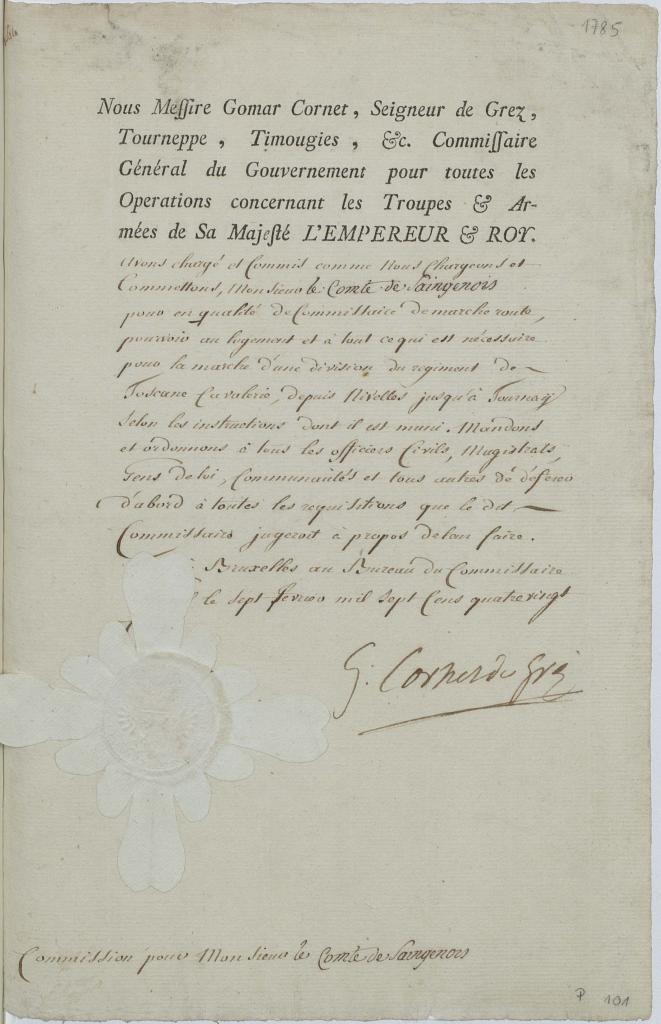 1785
Nous Meſſire Gomar Cornet, Seigneur de Grez,
Tourneppe, Timougies, &c. Commiſſaire
Général du Gouvernement pour toutes les
Operations concernant les Troupes & Ar-
mées de Sa Majeſté L'EMPEREUR & ROY.
Avons chargé et Commis comme Nous Chargeons et
Commettons, Monsieur le Comte de Saingenois
pour en qualité de Commissaire de marche route,
pourvoir au logement et à tout ce qui est nécessaire
pour la marche d'une division du regiment de
Toscane Cavalerie, depuis Nivelles jusqu'à Tournay
selon les instructions dont il est muni. Mandons
et ordonnons à tous les officiers Civils, Magistrats,
Gens de loi, Communautés et tous autres de déferer
d'abord à toutes les requisitions que le dit
Commissaire jugeroit à propos de leur faire.
à Bruxelles au Bureau du Commissaire
l le sept fevrier mil sept Cens quatrevingt
G: Cornet de Grez
Commission pour Monsieur le Comte de Saingenois
P 101